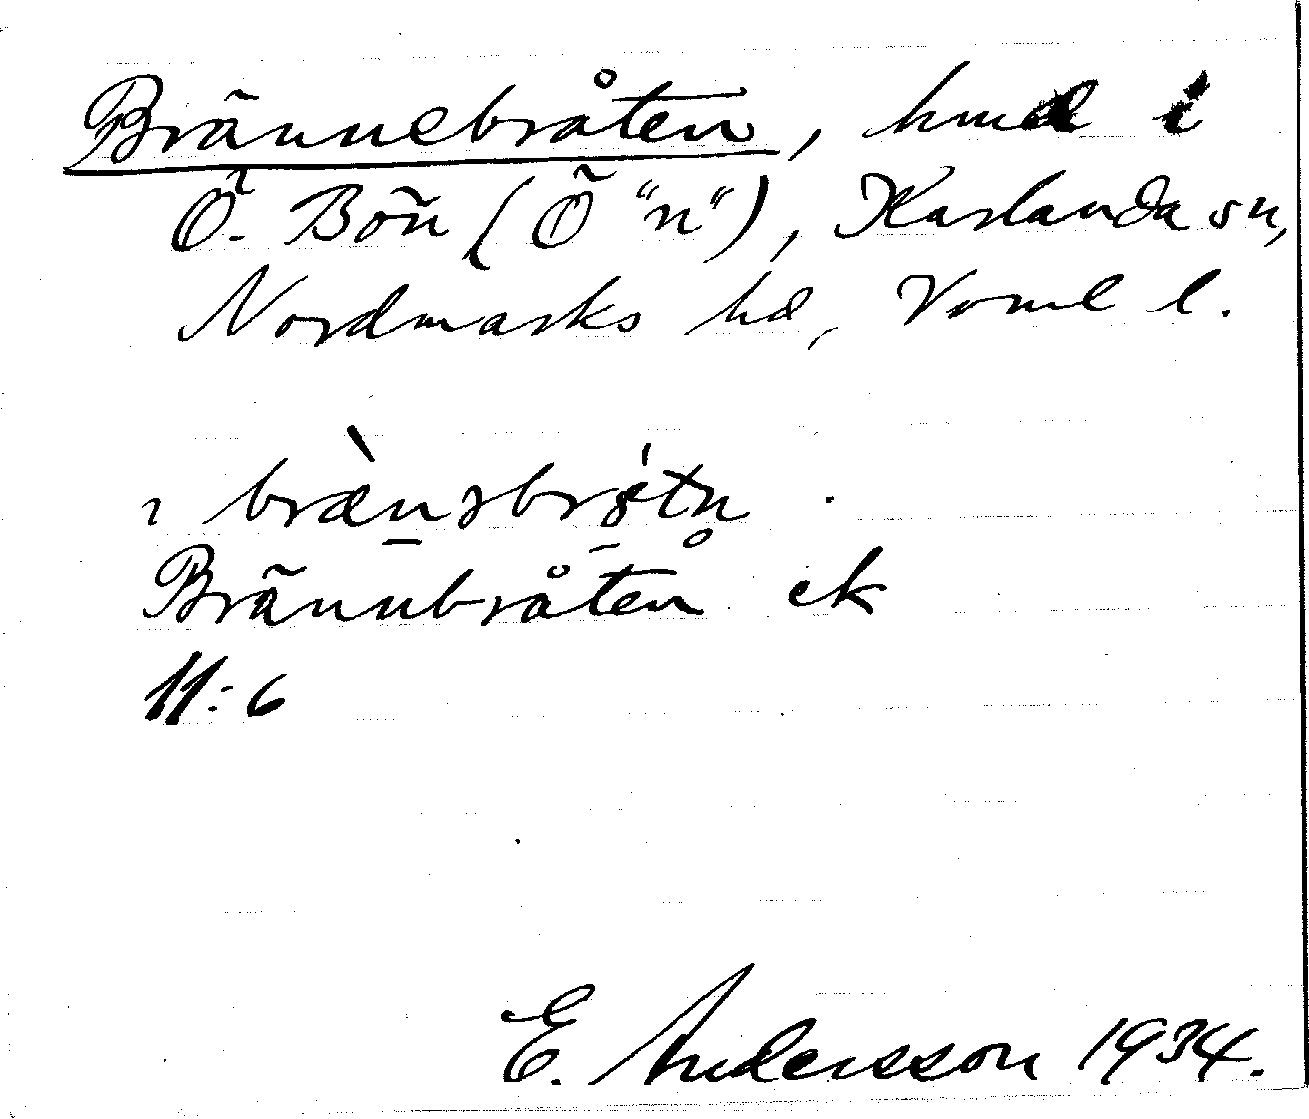 Brännebråten, hmd i
Ö. Bön (Ö "n"), Karlanda sn,
Nordmarks hd, Värml l.
ı bræ̀nəbrɵ́tn̥ .
Brännbråten ek
11:6
E. Andersson 1934.